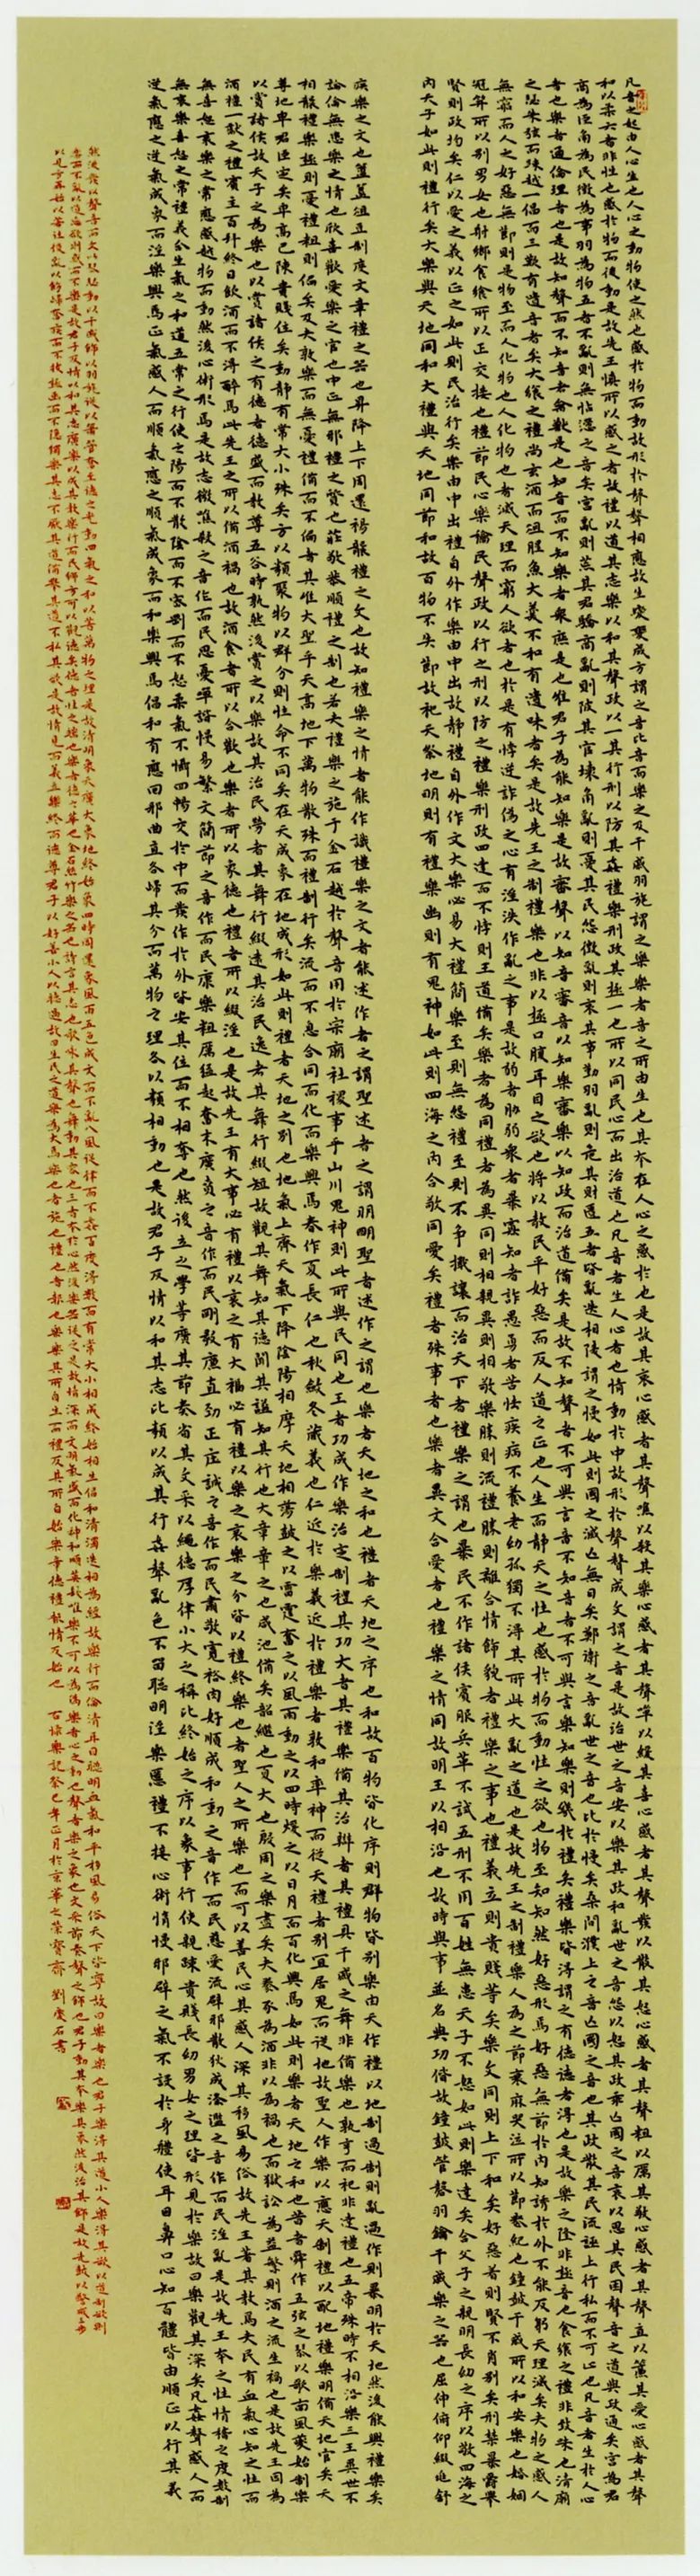 凡音之起由人心生也人心之動物使之然也感於物而動故形於聲聲相應故生變變成方謂之音比音而樂之及干戚羽旄謂之樂樂者音之所由生也其本在人心之感於也是故其哀心感者其聲噍以殺其樂心感者其聲嘽以緩其喜心感者其聲發以散其怒心感者其聲粗以厲其敬心感者其聲直以廉其愛心感者其聲
和以柔六者非性也感於物而後動是故先王慎所以感之者故禮以道其志樂以和其聲政以一其行刑以防其姦禮樂刑政其極一也所以同民心而出治道也凡音者生人心者也情動於中故形於聲聲成文謂之音是故治世之音安以樂其政和亂世之音怨以怒其政乖亡國之音哀以思其民困聲音之道與政通矣宮為君
商為臣角為民徵為事羽為物五者不亂則無怗懘之音矣宮亂則荒其君驕商亂則陂其官壞角亂則憂其民怨徵亂則哀其事勤羽亂則危其財匱五者皆亂迭相陵謂之慢如此則國之滅亡無日矣鄭衛之音亂世之音也比於慢矣桑間濮上之音亡國之音也其政散其民流誣上行私而不可止也凡音者生於人心
者也樂者通倫理者也是故知聲而不知音者禽獸是也知音而不知樂者眾庶是也唯君子為能知樂是故審聲以知音審音以知樂審樂以知政而治道備矣是故不知聲者不可與言音不知音者不可與言樂知樂則幾於禮矣禮樂皆得謂之有德德者得也是故樂之隆非極音也食饗之禮非致味也清廟
之瑟朱弦而疏越一倡而三歎有遺音者矣大饗之禮尚玄酒而俎腥魚大羹不和有遺味者矣是故先王之制禮樂也非以極口腹耳目之欲也將以教民平好惡而反人道之正也人生而靜天之性也感於物而動性之欲也物至知知然好惡形焉好惡無節於內知誘於外不能反躬天理滅矣夫物之感人
無窮而人之好惡無節則是物至而人化物也人化物也者滅天理而窮人欲者也於是有悖逆詐偽之心有淫泆作亂之事是故強者脅弱眾者暴寡知者詐愚勇者苦怯疾病不養老幼孤獨不得其所此大亂之道也是故先王之制禮樂人為之節衰麻哭泣所以節喪紀也鐘鼓干戚所以和安樂也婚姻
冠笄所以別男女也射鄉食饗所以正交接也禮節民心樂和民聲政以行之刑以防之禮樂刑政四達而不悖則王道備矣樂者為同禮者為異同則相親異則相敬樂勝則流禮勝則離合情飾貌者禮樂之事也禮義立則貴賤等矣樂文同則上下和矣好惡著則賢不肖別矣刑禁暴爵舉
賢則政均矣仁以愛之義以正之如此則民治行矣樂由中出禮自外作樂由中出故靜禮自外作文大樂必易大禮簡樂至則無怨禮至則不爭揖讓而治天下者禮樂之謂也暴民不作諸侯賓服兵革不試五刑不用百姓無患天子不怒如此則樂達矣合父子之親明長幼之序以敬四海之
內天子如此則禮行矣大樂與天地同和大禮與天地同節和故百物不失節故祀天祭地明則有禮樂幽則有鬼神如此則四海之內合敬同愛矣禮者殊事者也樂者異文合愛者也禮樂之情同故明王以相沿也故時與事並名與功偕故鐘鼓管磬羽籥干戚樂之器也屈伸俯仰綴兆舒
疾樂之文也簠簋俎豆制度文章禮之器也昇降上下周還裼襲禮之文也故知禮樂之情者能作識禮樂之文者能述作者之謂聖述者之謂明明聖者述作之謂也樂者天地之和也禮者天地之序也和故百物皆化序則群物皆別樂由天作禮以地制過制則亂過作則暴明於天地然後能興禮樂矣
論倫無患樂之情也欣喜歡愛樂之官也中正無邪禮之質也莊敬恭順禮之制也若夫禮樂之施于金石越於聲音用於宗廟社稷事乎山川鬼神則此所與民同也王者功成作樂治定制禮其功大者其禮樂備其治辯者其禮具干戚之舞非備樂也孰亨而祀非達禮也五帝殊時不相沿樂三王異世不
相襲禮樂極則憂禮粗則偏矣及夫敦樂而無憂禮備而不偏者其唯大聖乎天高地下萬物散殊而禮制行矣流而不息合同而化而樂興焉春作夏長仁也秋斂冬藏義也仁近於樂義近於禮樂者敦和率神而從天禮者別宜居鬼而從地故聖人作樂以應天制禮以配地禮樂明備天地官矣天
尊地卑君臣定矣卑高已陳貴賤位矣動靜有常大小殊矣方以類聚物以群分則性命不同矣在天成象在地成形如此則禮者天地之別也地氣上齊天氣下降陰陽相摩天地相蕩鼓之以雷霆奮之以風雨動之以四時煖之以日月而百化興焉如此則樂者天地之和也昔者舜作五弦之琴以歌南風夔始制樂
以賞諸侯故天子之為樂也以賞諸侯之有德者德盛而教尊五穀時熟然後賞之以樂故其治民勞者其舞行綴遠其治民逸者其舞行綴短故觀其舞知其德聞其謚知其行也大章章之也咸池備矣韶繼也夏大也殷周之樂盡矣夫豢豕為酒非以為禍也而獄訟為益繁則酒之流生禍也是故先王因為
酒禮一獻之禮賓主百拜終日飲酒而不得醉焉此先王之所以備酒禍也故酒食者所以合歡也樂者所以象德也禮者所以綴淫也是故先王有大事必有禮以哀之有大福必有禮以樂之哀樂之分皆以禮終樂也者聖人之所樂也而可以善民心其感人深其移風易俗故先王著其教焉夫民有血氣心知之性而
無喜怒哀樂之常應感起物而動然後心術形焉是故志微噍殺之音作而民思憂嘽諧慢易繁文簡節之音作而民康樂粗厲猛起奮末廣賁之音作而民剛毅廉直勁正莊誠之音作而民肅敬寬裕肉好順成和動之音作而民慈愛流辟邪散狄成滌濫之音作而民淫亂是故先王本之性情稽之度數制
無哀樂喜怒之常禮義合生氣之和道五常之行使之陽而不散陰而不密剛而不怒柔氣不懾四暢交於中而發作於外皆安其位而不相奪也然後立之學等廣其節奏省其文采以繩德厚律小大之稱比終始之序以象事行使親疎貴賤長幼男女之理皆形見於樂故曰樂觀其深矣凡姦聲感人而
逆氣應之逆氣成象而淫樂興焉正氣感人而順氣應之順氣成象而和樂興焉倡和有應回邪曲直各歸其分而萬物之理各以類相動也是故君子反情以和其志比類以成其行姦聲亂色不留聰明淫樂慝禮不接心術惰慢邪辟之氣不設於身體使耳目鼻口心知百體皆由順正以行其義
然後發以聲音而文以琴瑟動以干戚飾以羽旄從以簫管奮至德之光動四氣之和以著萬物之理是故清明象天廣大象地終始象四時周還象風雨五色成文而不亂八風從律而不姦百度得數而有常大小相成終始相生倡和清濁迭相為經故樂行而倫清耳目聰明血氣和平移風易俗天下皆寧故曰樂者樂也君子樂得其道小人樂得其欲以道制欲則
樂而不亂以欲忘道則惑而不樂是故君子反情以和其志廣樂以成其教樂行而民鄉方可以觀德矣德者性之端也樂者德之華也金石絲竹樂之器也詩言其志也歌咏其聲也舞動其容也三者本於心然後樂器從之是故情深而文明氣盛而化神和順積中而英華發外唯樂不可以為偽樂者心之動也聲者樂之象也文采節奏聲之飾也君子動其本樂其象然後治其飾是故先鼓以警戒三步
以見方再始以著往復亂以飭歸奮疾而不拔極幽而不隱獨樂其志不厭其道備舉其道不私其欲是故情見而義立樂終而德尊君子以好善小人以聽過故曰生民之道樂為大焉樂也者施也禮也者報也樂樂其所自生而禮反其所自始樂章德禮報情反始也 右錄樂記癸巳年正月於京華之榮寶齋 劉慶石書